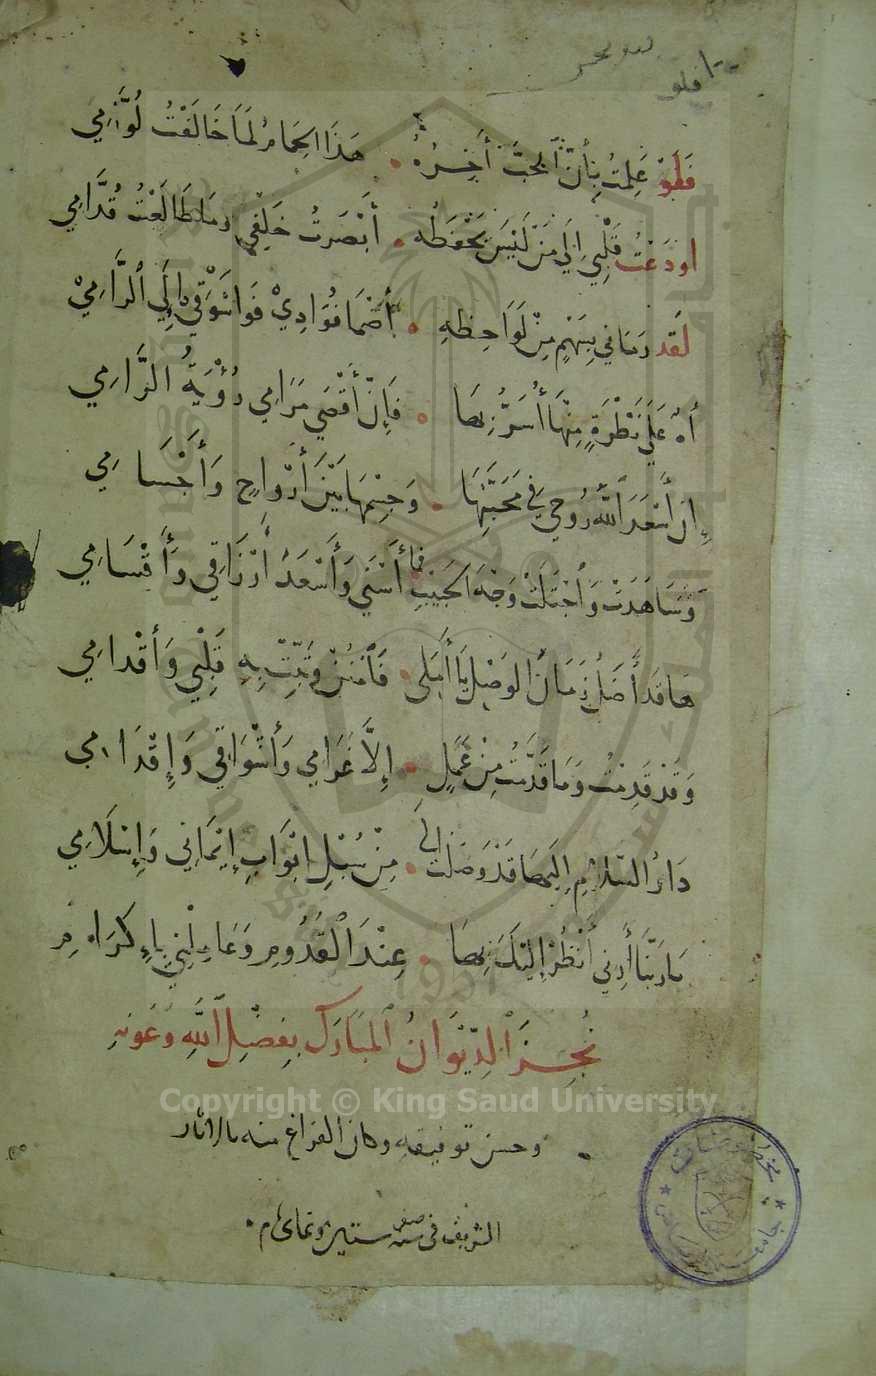 فلو
فَلَوْ عَلِمْتُ بِأَنَّ الحُبَّ آخِرُهُ . هَذَا الحِمَامُ لَمَا خَالَفْتُ لُوَّامِي
اودَعْتُ قَلْبِي إِلَى مَنْ لَيْسَ يَحْفَظُه . أَبْصَرتُ خَلْفِي وَمَا طَالَعْتُ قُدَّامِي
لَقَد رَمَانِي بِسَهْمٍ مِنْ لَوَاحِظِهِ . أَصْمَا فُوَادِيْ فَوَاشَوْقِي إِلَى الرَّامِيْ
أهٍ عَلَى نَظْرَةٍ مِنْهَا أُسَرُّ بِهَا . فَإِنَّ أَقْصَى مَرَامِي رُؤْيَةُ الرَّامِي
إِن أَسْعَدَ اللَّهُ رُوحِي فِي مَحَبَّتِهَا . وَجِسْمِهَا بَيْنَ أَرْوَاحٍ وَأَجْسَامِي
وَشَاهَدَتْ وَاجْتَلَتْ وَجْهَ الحَبِيبِ فما أَسْنَى وَأَسْعَدُ أَرْزَاقِي وَأَقْسَامِي
هَا قَد أَظَلَّ زَمَانُ الوَصْلِ يَا أَمَلِي . فَامْنُنْ وَثَبِّتْ بِهِ قَلْبِي وَأَقْدامِي
وَقَدْ قَدِمْتُ وَمَا قَدَّمْتُ مِنْ عَمَلٍ . إِلَّا غَرَامِي وَأَشْوَاقِي وَإِقْدَامِي
دَارُ السَّلَامِ إِلَيْهَا قَدْ وَصَلْتُ . مِنْ سُبْلِ ابْوَابِ إِيْمَانِي وَإِسْلَامِي
يَا رَبَّنَا أَرِنِي أَنْظُرْ إِلَيْكَ بِهَا . عِنْدَ القُدُومِ وَعَامِلْنِي بِإِكْرَامِ
نُجِزَ الدِّيْوَانُ المُبَارَك بِفَضْلِ اللَّهِ وَعَونِهِ
وحسن توفيقه وكان الفراغ منه
الشريف في سنه ستين وثمان م
Copyright © King Saud University
1957